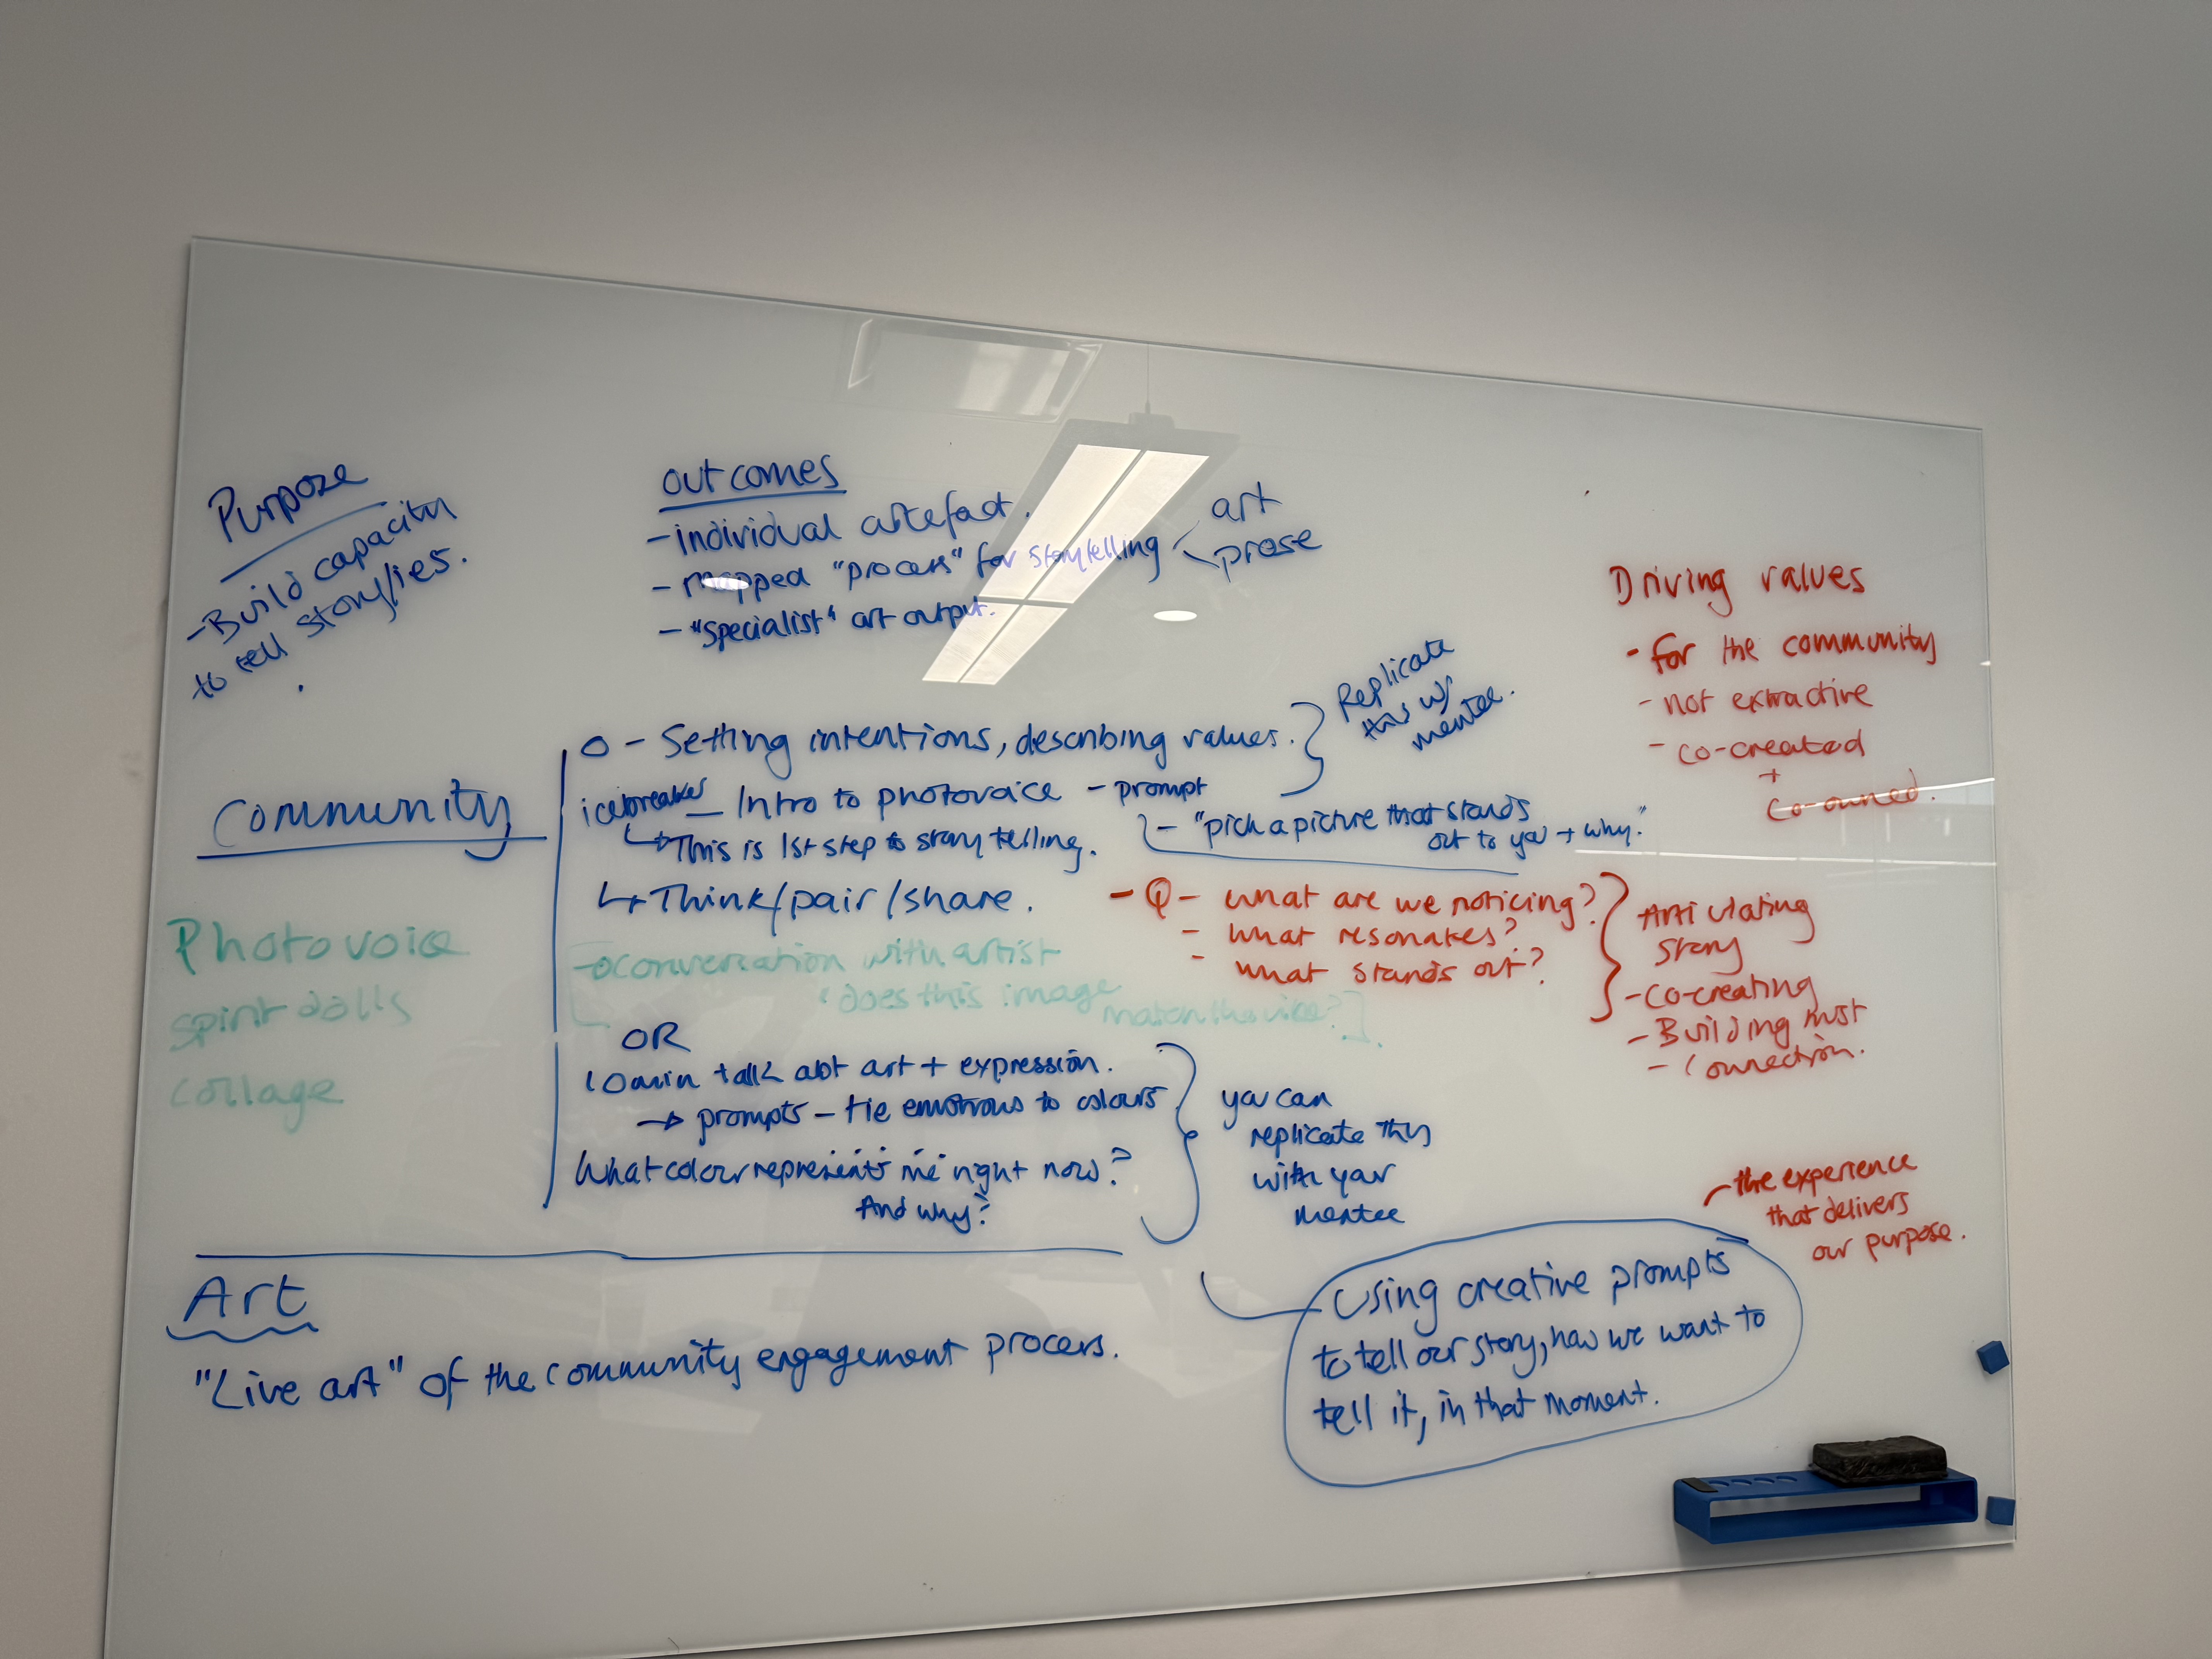 Purpose
- Build capacity
to tell story/ies.
outcomes
- individual artefact.
- mapped "process" for storytelling
art
prose
- "specialist" art output.
Driving values
- for the community
- not extractive
- co-created
+
co-owned.
Community
O - Setting intentions, describing values.
Replicate
this w/
mentee.
icebreaker - Intro to photovoice - prompt
↳ This is 1st step to story telling.
- "pick a picture that stands
out to you + why."
↳ Think/pair/share.
- Q - what are we noticing?
- what resonates?
- what stands out?
Articulating
story
- co-creating
- Building trust
- Connection.
Photovoice
spirit dolls
collage
conversation with artist
"does this image
match the vibe?"].
OR
10 min talk abt art + expression.
→ prompts - tie emotions to colours
What colour represents me right now?
And why?
you can
replicate this
with your
mentee
- the experience
that delivers
our purpose.
Using creative prompts
to tell our story, how we want to
tell it, in that moment.
Art
"Live art" of the community engagement process.